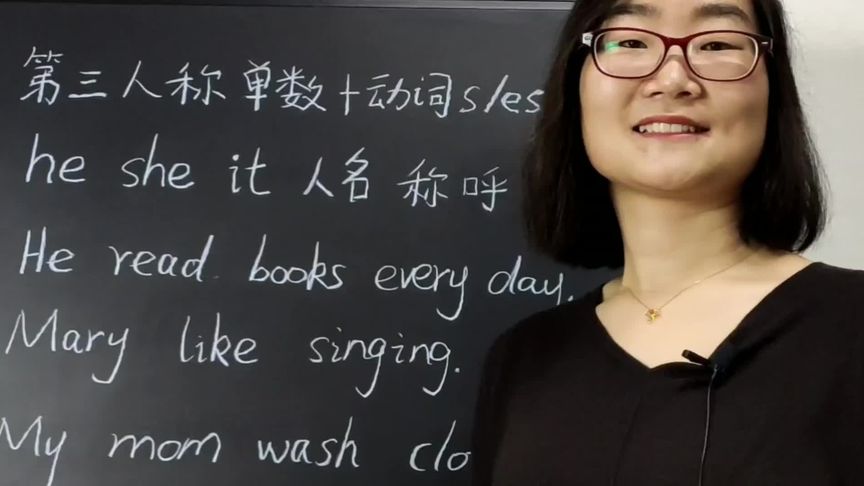 第三人称单数+动词s/es
he she it 人名 称呼
He read books every day.
Mary like singing.
My mom wash